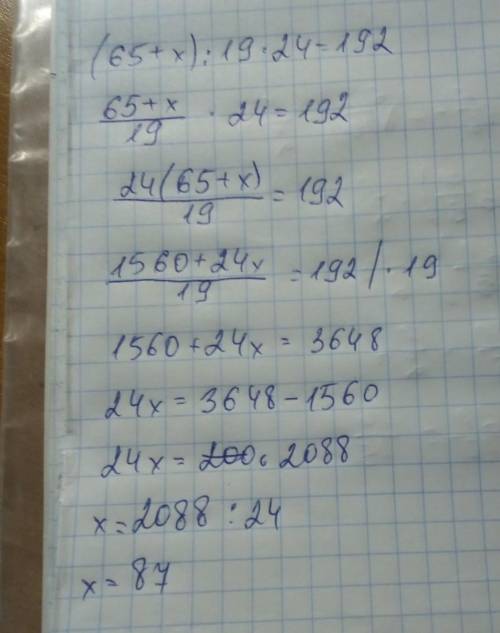 (65+x):19·24=192
65+x/19 · 24=192
24(65+x)/19 = 192
1560+24x/19 = 192 | · 19
1560+24x = 3648
24x = 3648-1560
24x = 2088
x=2088:24
x=87